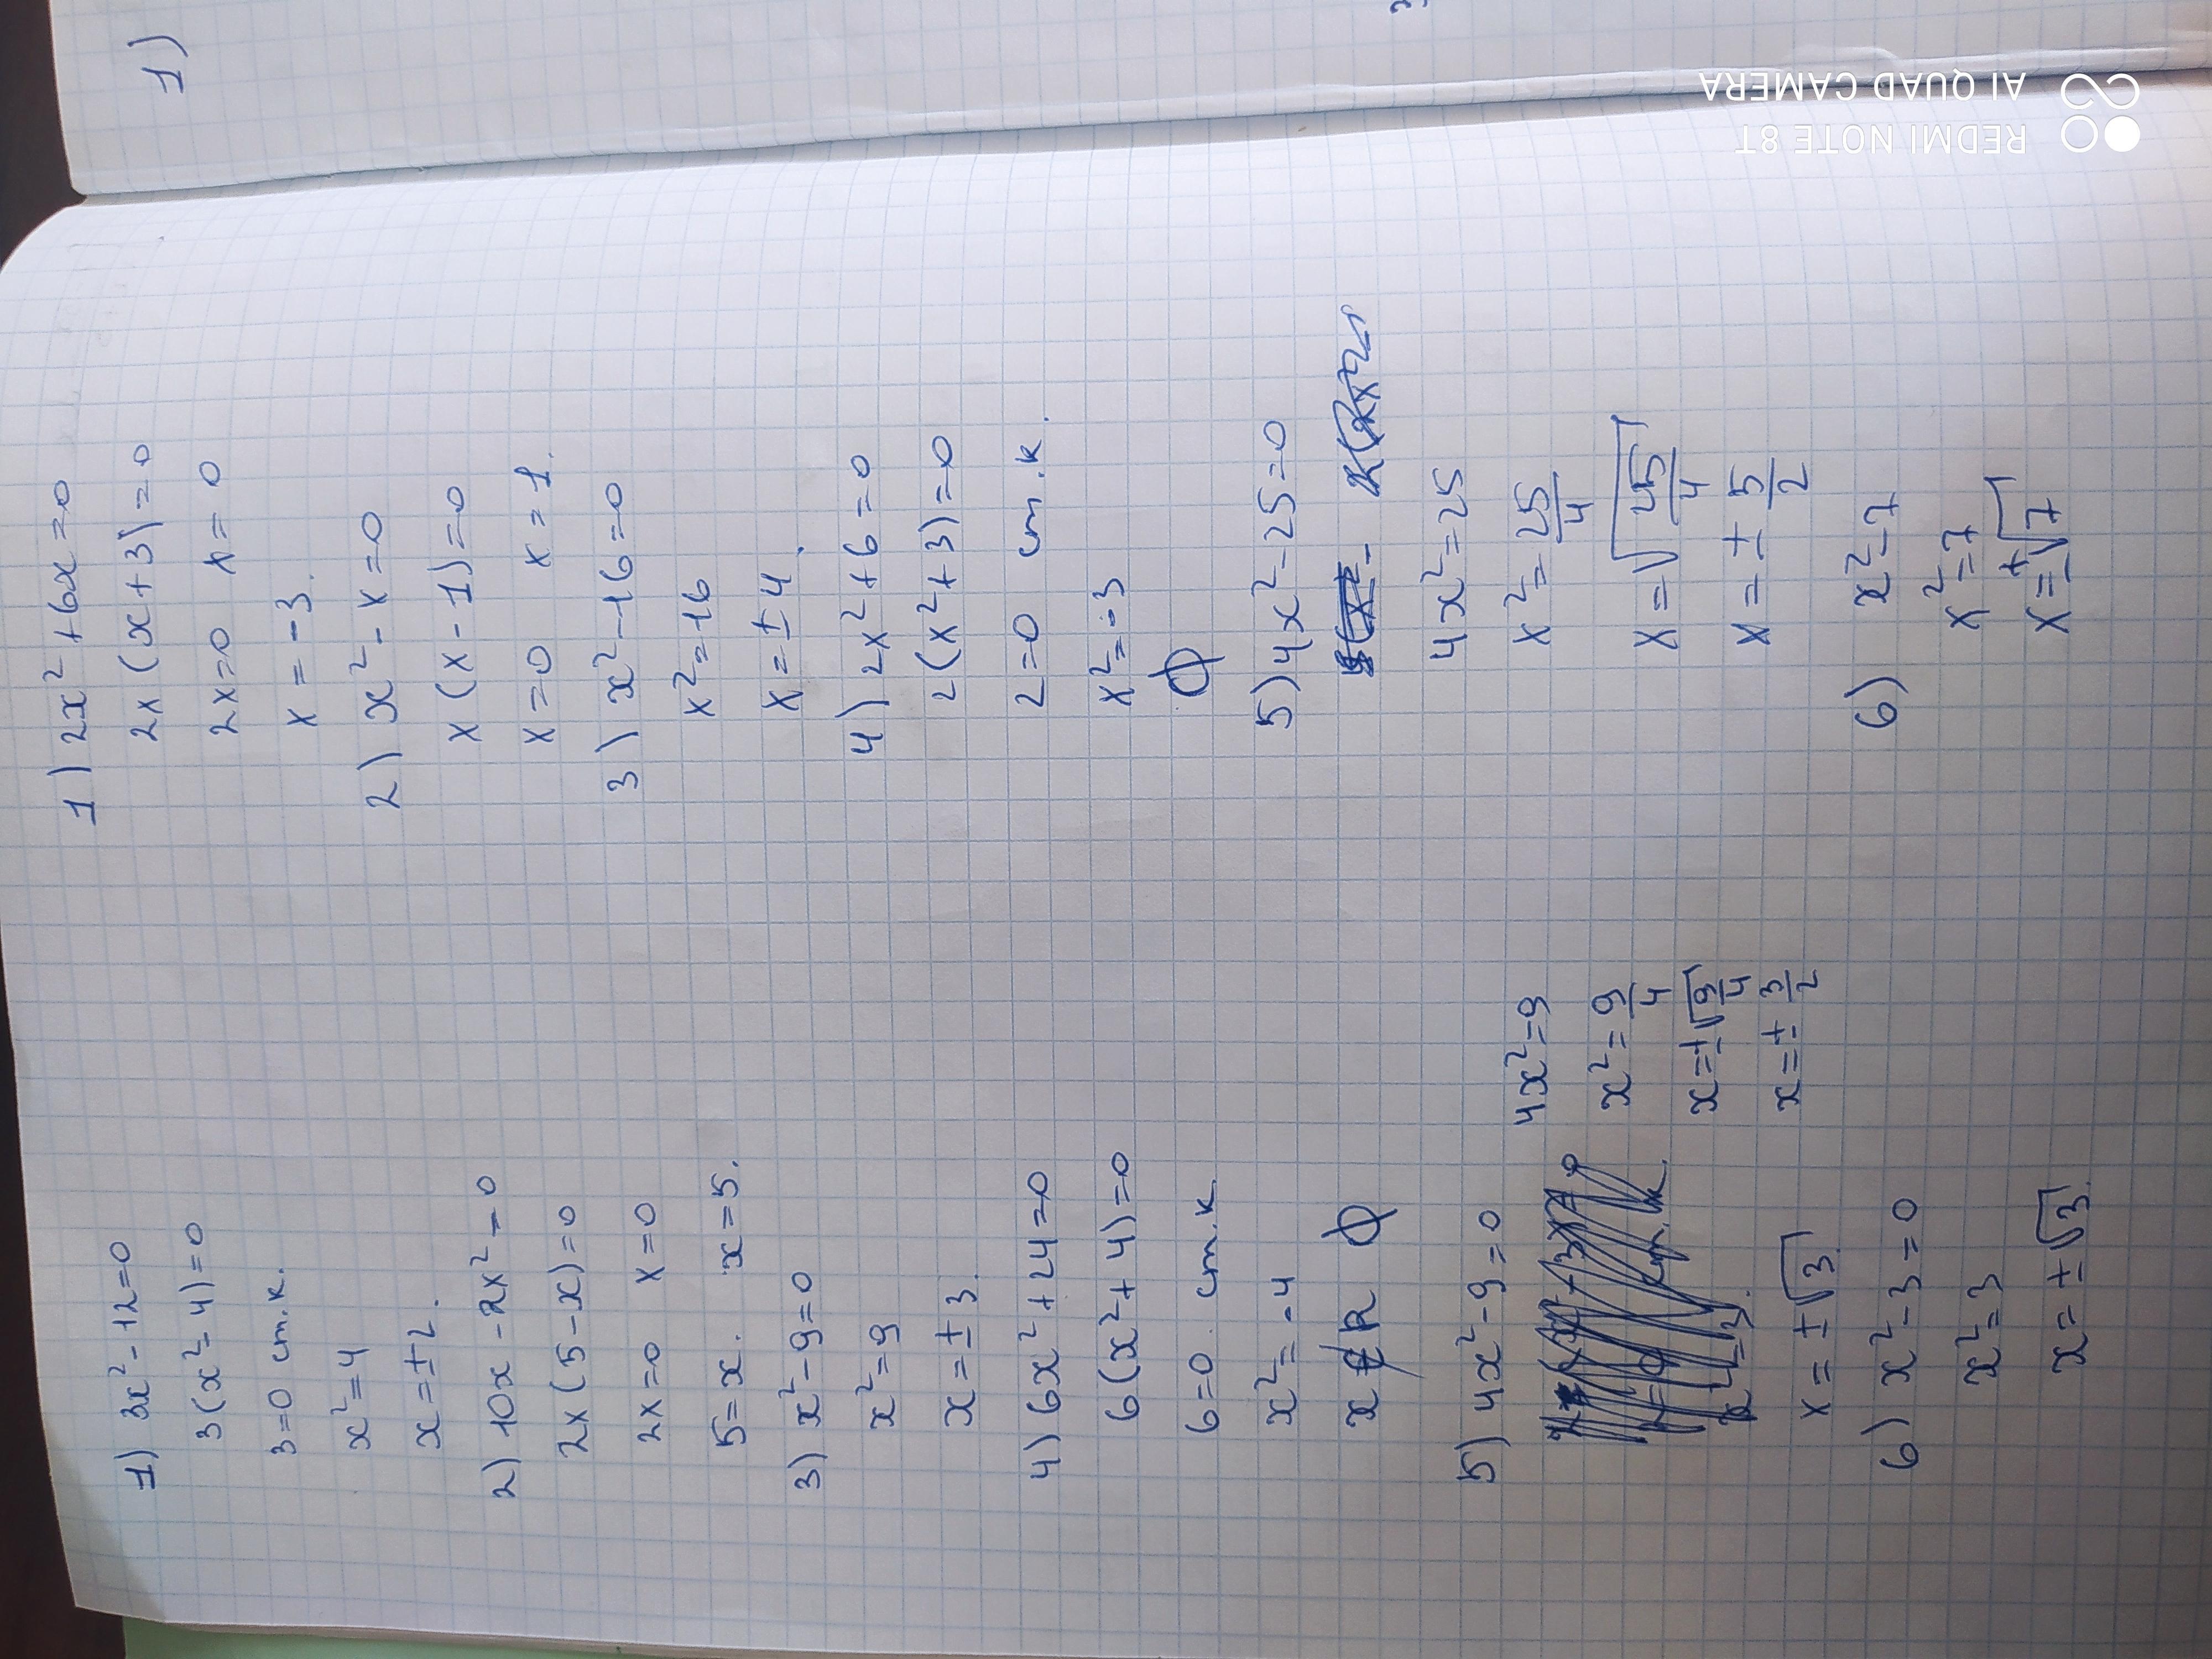 1) 3x² - 12 = 0
3(x² - 4) = 0
3 = 0 ст.к.
x² = 4
x = ± 2.
2) 10x - 2x² = 0
2x(5 - x) = 0
2x = 0 x = 0
5 = x. x = 5.
3) x² - 9 = 0
x² = 9
x = ± 3.
4) 6x² + 24 = 0
6(x² + 4) = 0
6 = 0. ст.к.
x² = -4
x ∉ R ∅
5) 4x² - 9 = 0
4x² = 9
x² = 9/4
x = ±√9/4
x = ± 3/2
x = ± √3.
6) x² - 3 = 0
x² = 3
x = ± √3.
1) 2x² + 6x = 0
2x(x + 3) = 0
2x = 0 x = 0
x = -3.
2) x² - x = 0
x(x - 1) = 0
x = 0 x = 1.
3) x² - 16 = 0
x² = 16
x = ± 4.
4) 2x² + 6 = 0
2(x² + 3) = 0
2 = 0 ст.к.
x² = -3
∅
5) 4x² - 25 = 0
4x² = 25
x² = 25/4
x = √25/4
x = ± 5/2
6) x² - 7
x² = 7
x = ±√7
1)
REDMI NOTE 8T
AI QUAD CAMERA